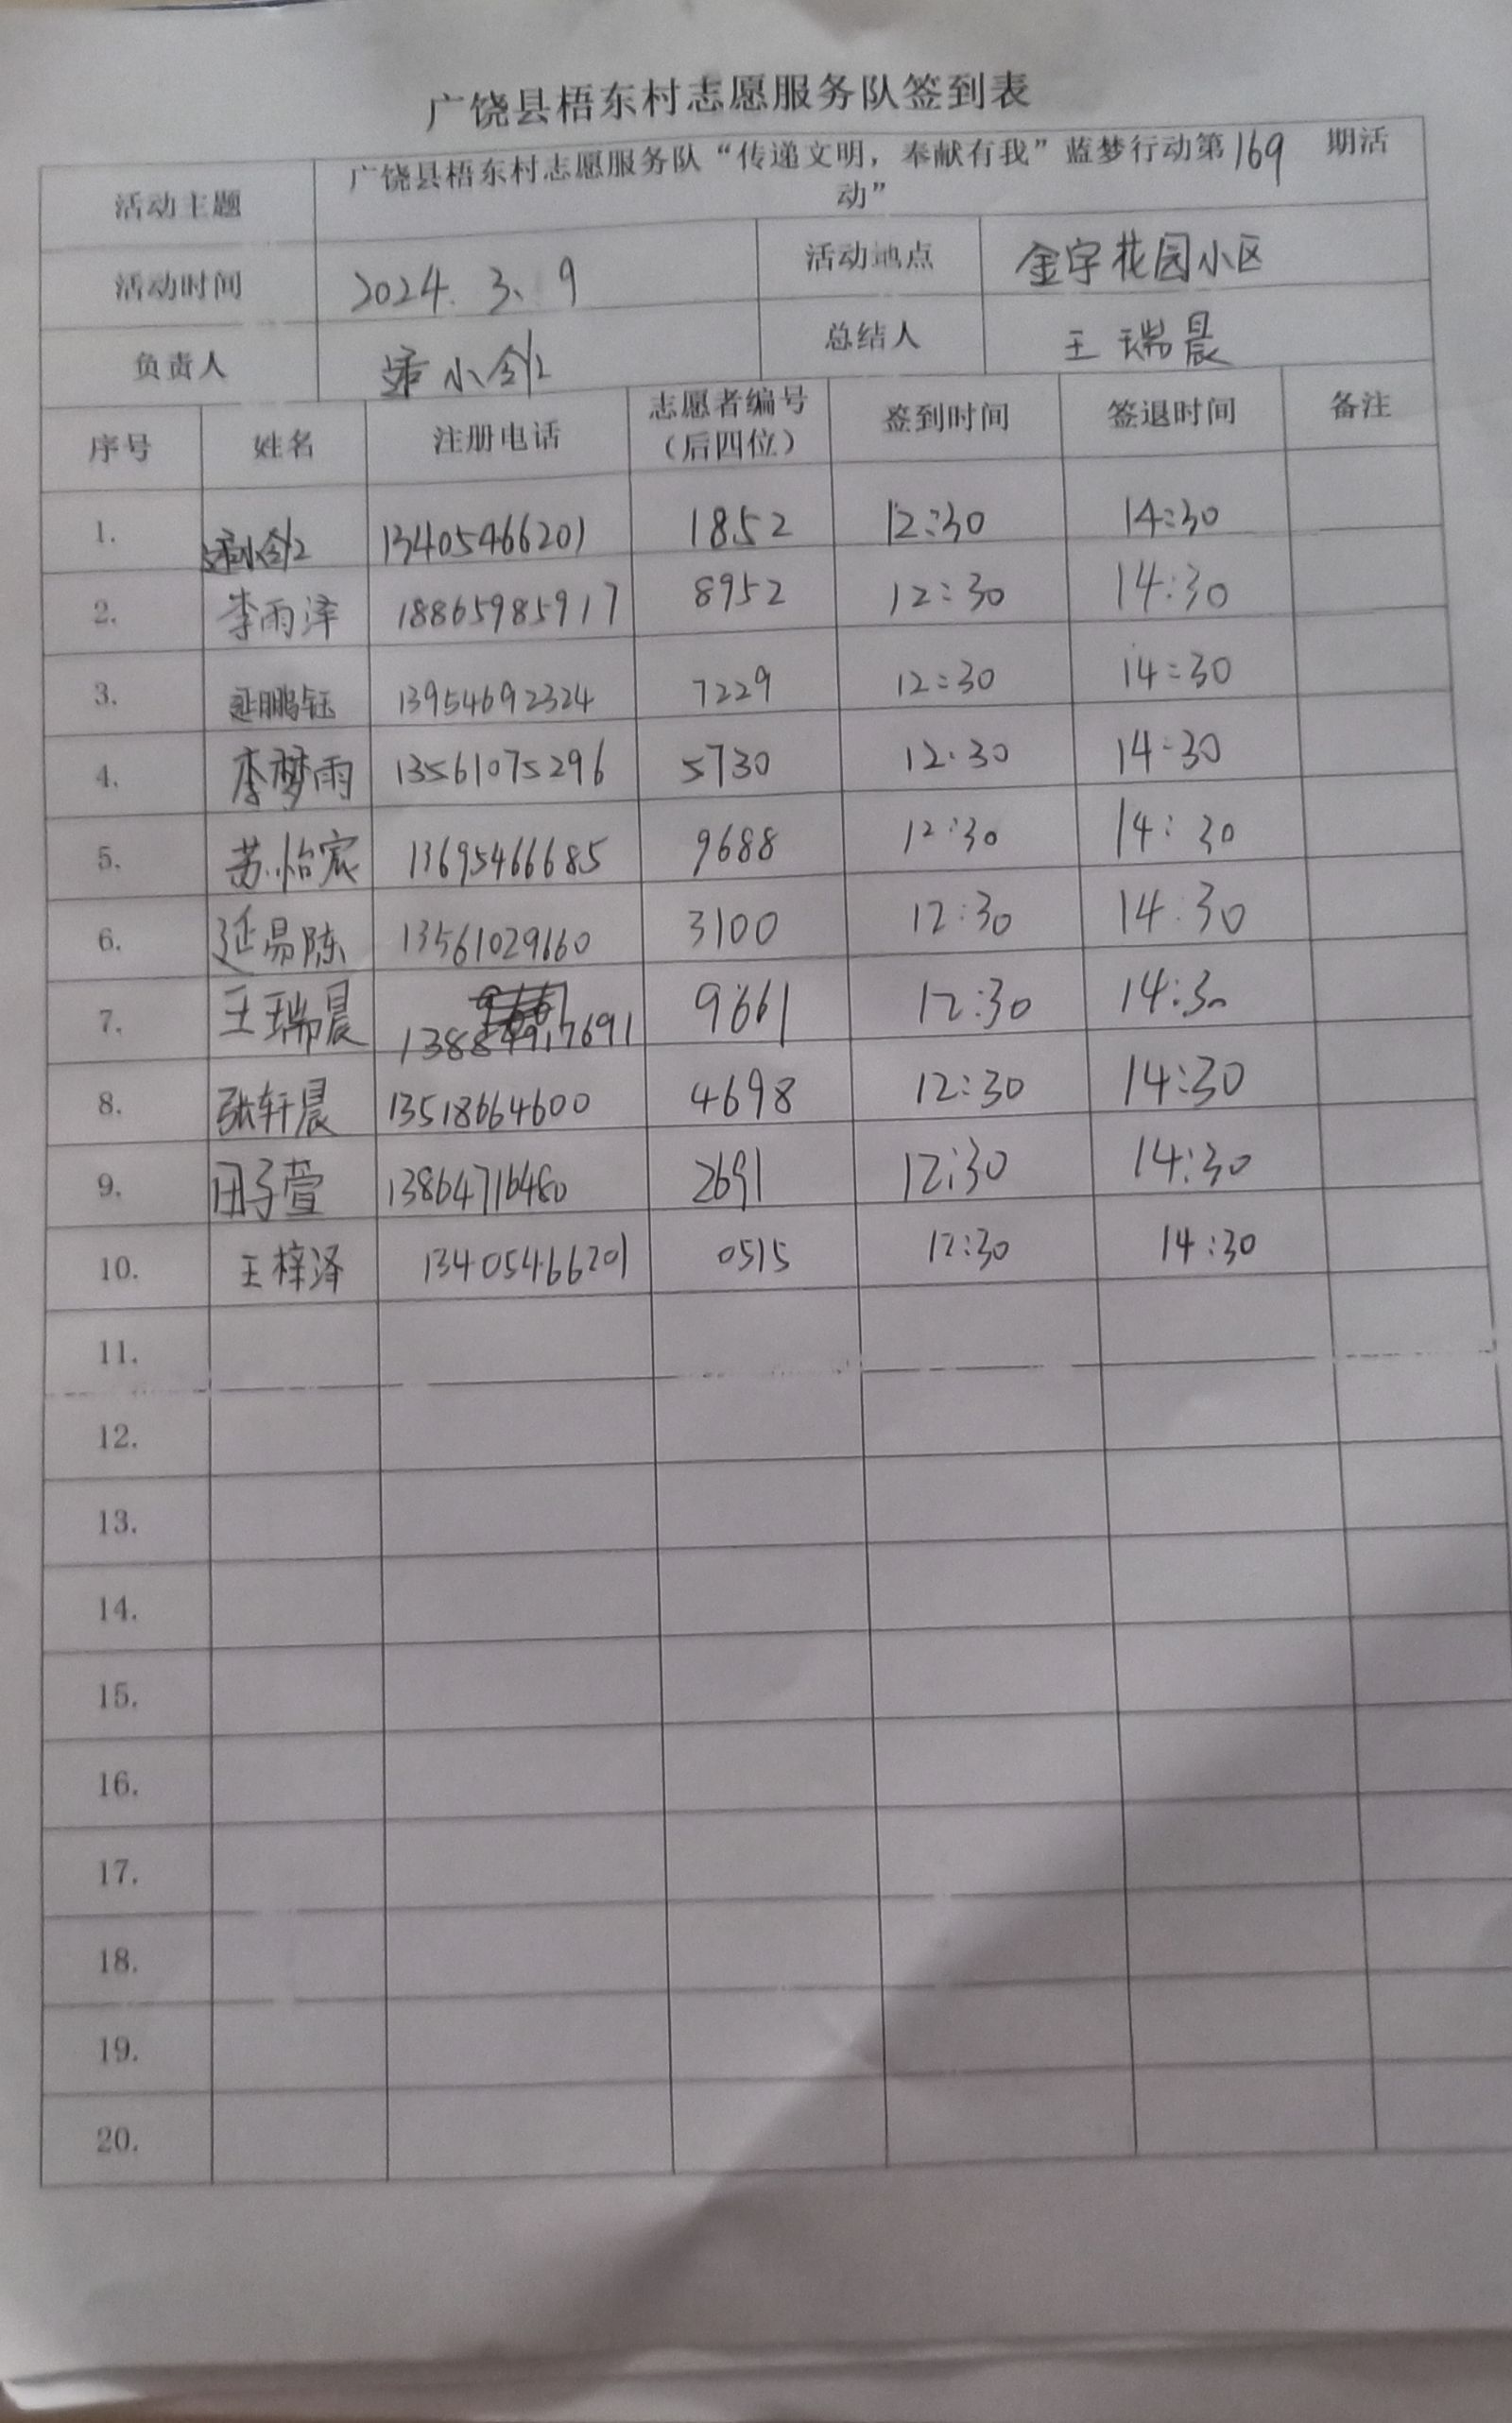 广饶县梧东村志愿服务队签到表
活动主题 广饶县梧东村志愿服务队“传递文明，奉献有我”蓝梦行动第169 期活
动”
活动时间 2024.3、9 活动地点 金宇花园小区
负责人 小 总结人 王瑞晨
序号 姓名 注册电话 志愿者编号 签到时间 签退时间 备注
（后四位）
1. 13405466201 1852 12:30 14:30
2. 李雨泽 18865985917 8952 12:30 14:30
3. 延鹏钰 13954692324 7229 12:30 14:30
4. 李梦雨 13561075296 5730 12:30 14:30
5. 苏怡宸 13695466685 9688 12:30 14:30
6. 延易陈 13561029660 3100 12:30 14:30
7. 王瑞晨 9661 12:30 14:30
8. 张轩晨 13518664600 4698 12:30 14:30
9. 田子萱 13864716480 2691 12:30 14:30
10. 王梓泽 13405466201 0515 12:30 14:30
11.
12.
13.
14.
15.
16.
17.
18.
19.
20.